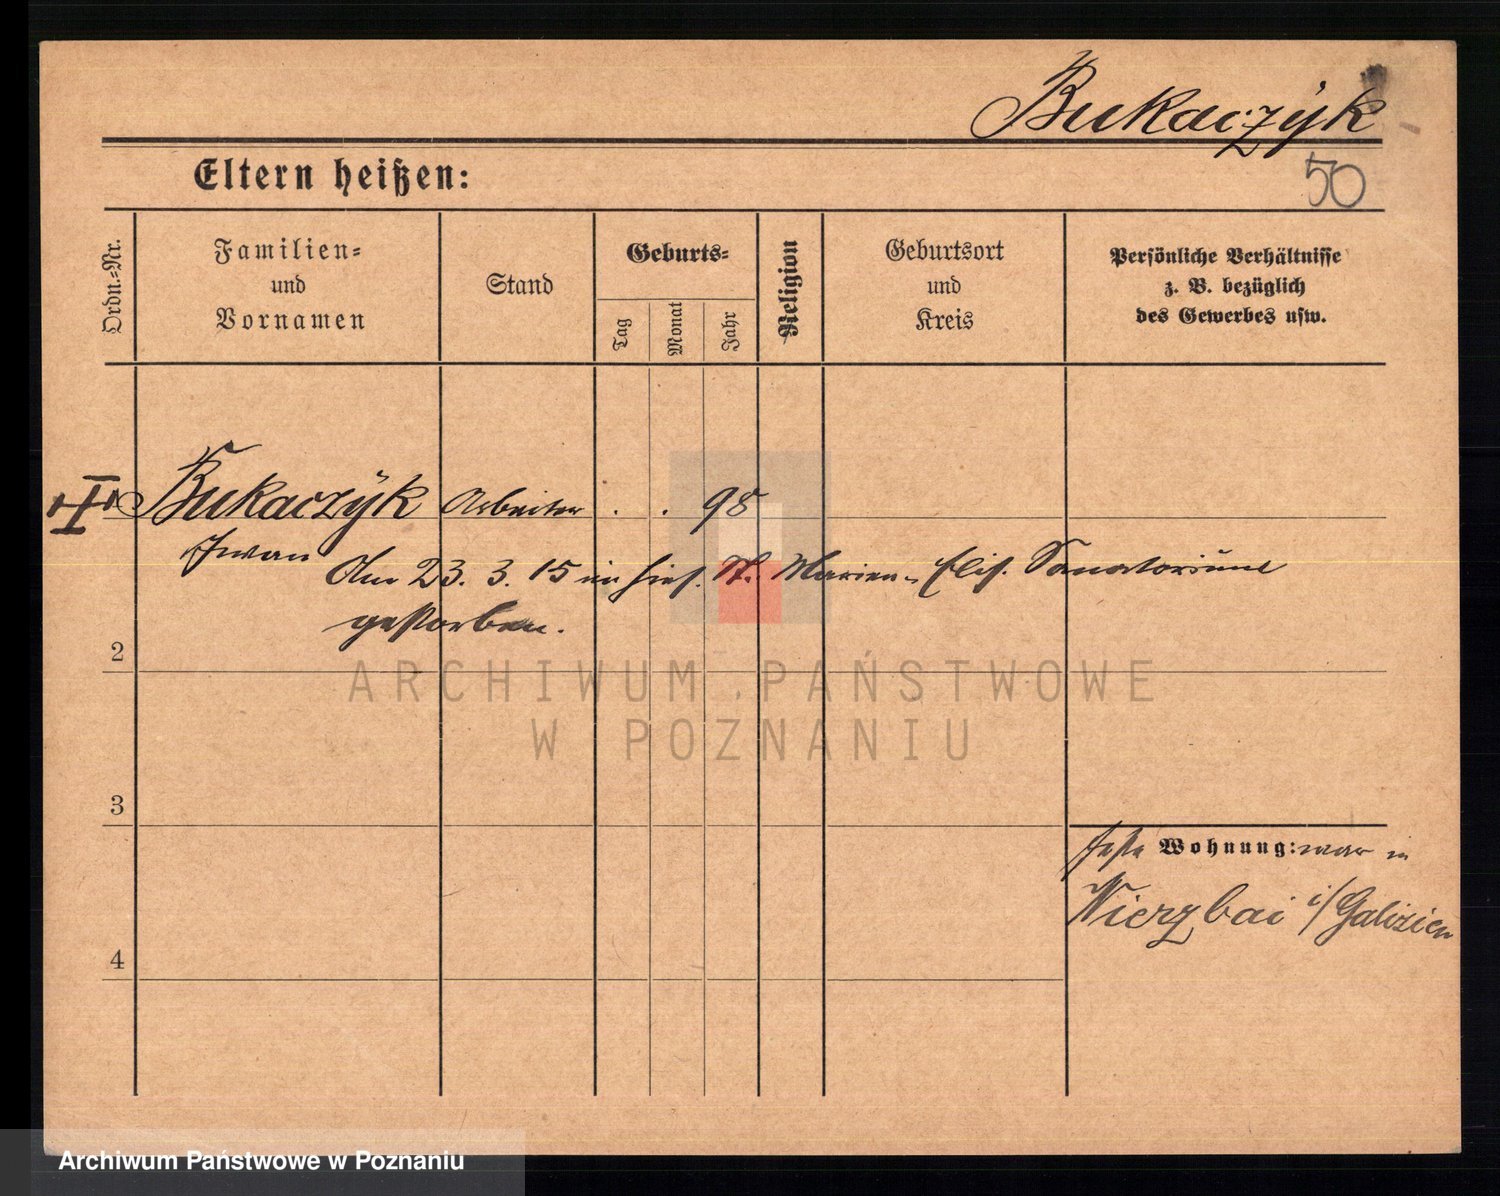 Bukaczÿk
Eltern heißen:
50
Ordn.-Nr.
Familien-
und
Vornamen
Stand
Geburts-
Tag
Monat
Jahr
Religion
Geburtsort
und
Kreis
Persönliche Verhältnisse
z. B. bezüglich
des Gewerbes usw.
Bukaczÿk Arbeiter . . 98
Iwan
Am 23. 3. 15 im hies. St. Marien-Elis. Sanatorium
gestorben.
2
3
4
feste Wohnung: war in
Wierzbai i/Galizien
ARCHIWUM PAŃSTWOWE
W POZNANIU
Archiwum Państwowe w Poznaniu